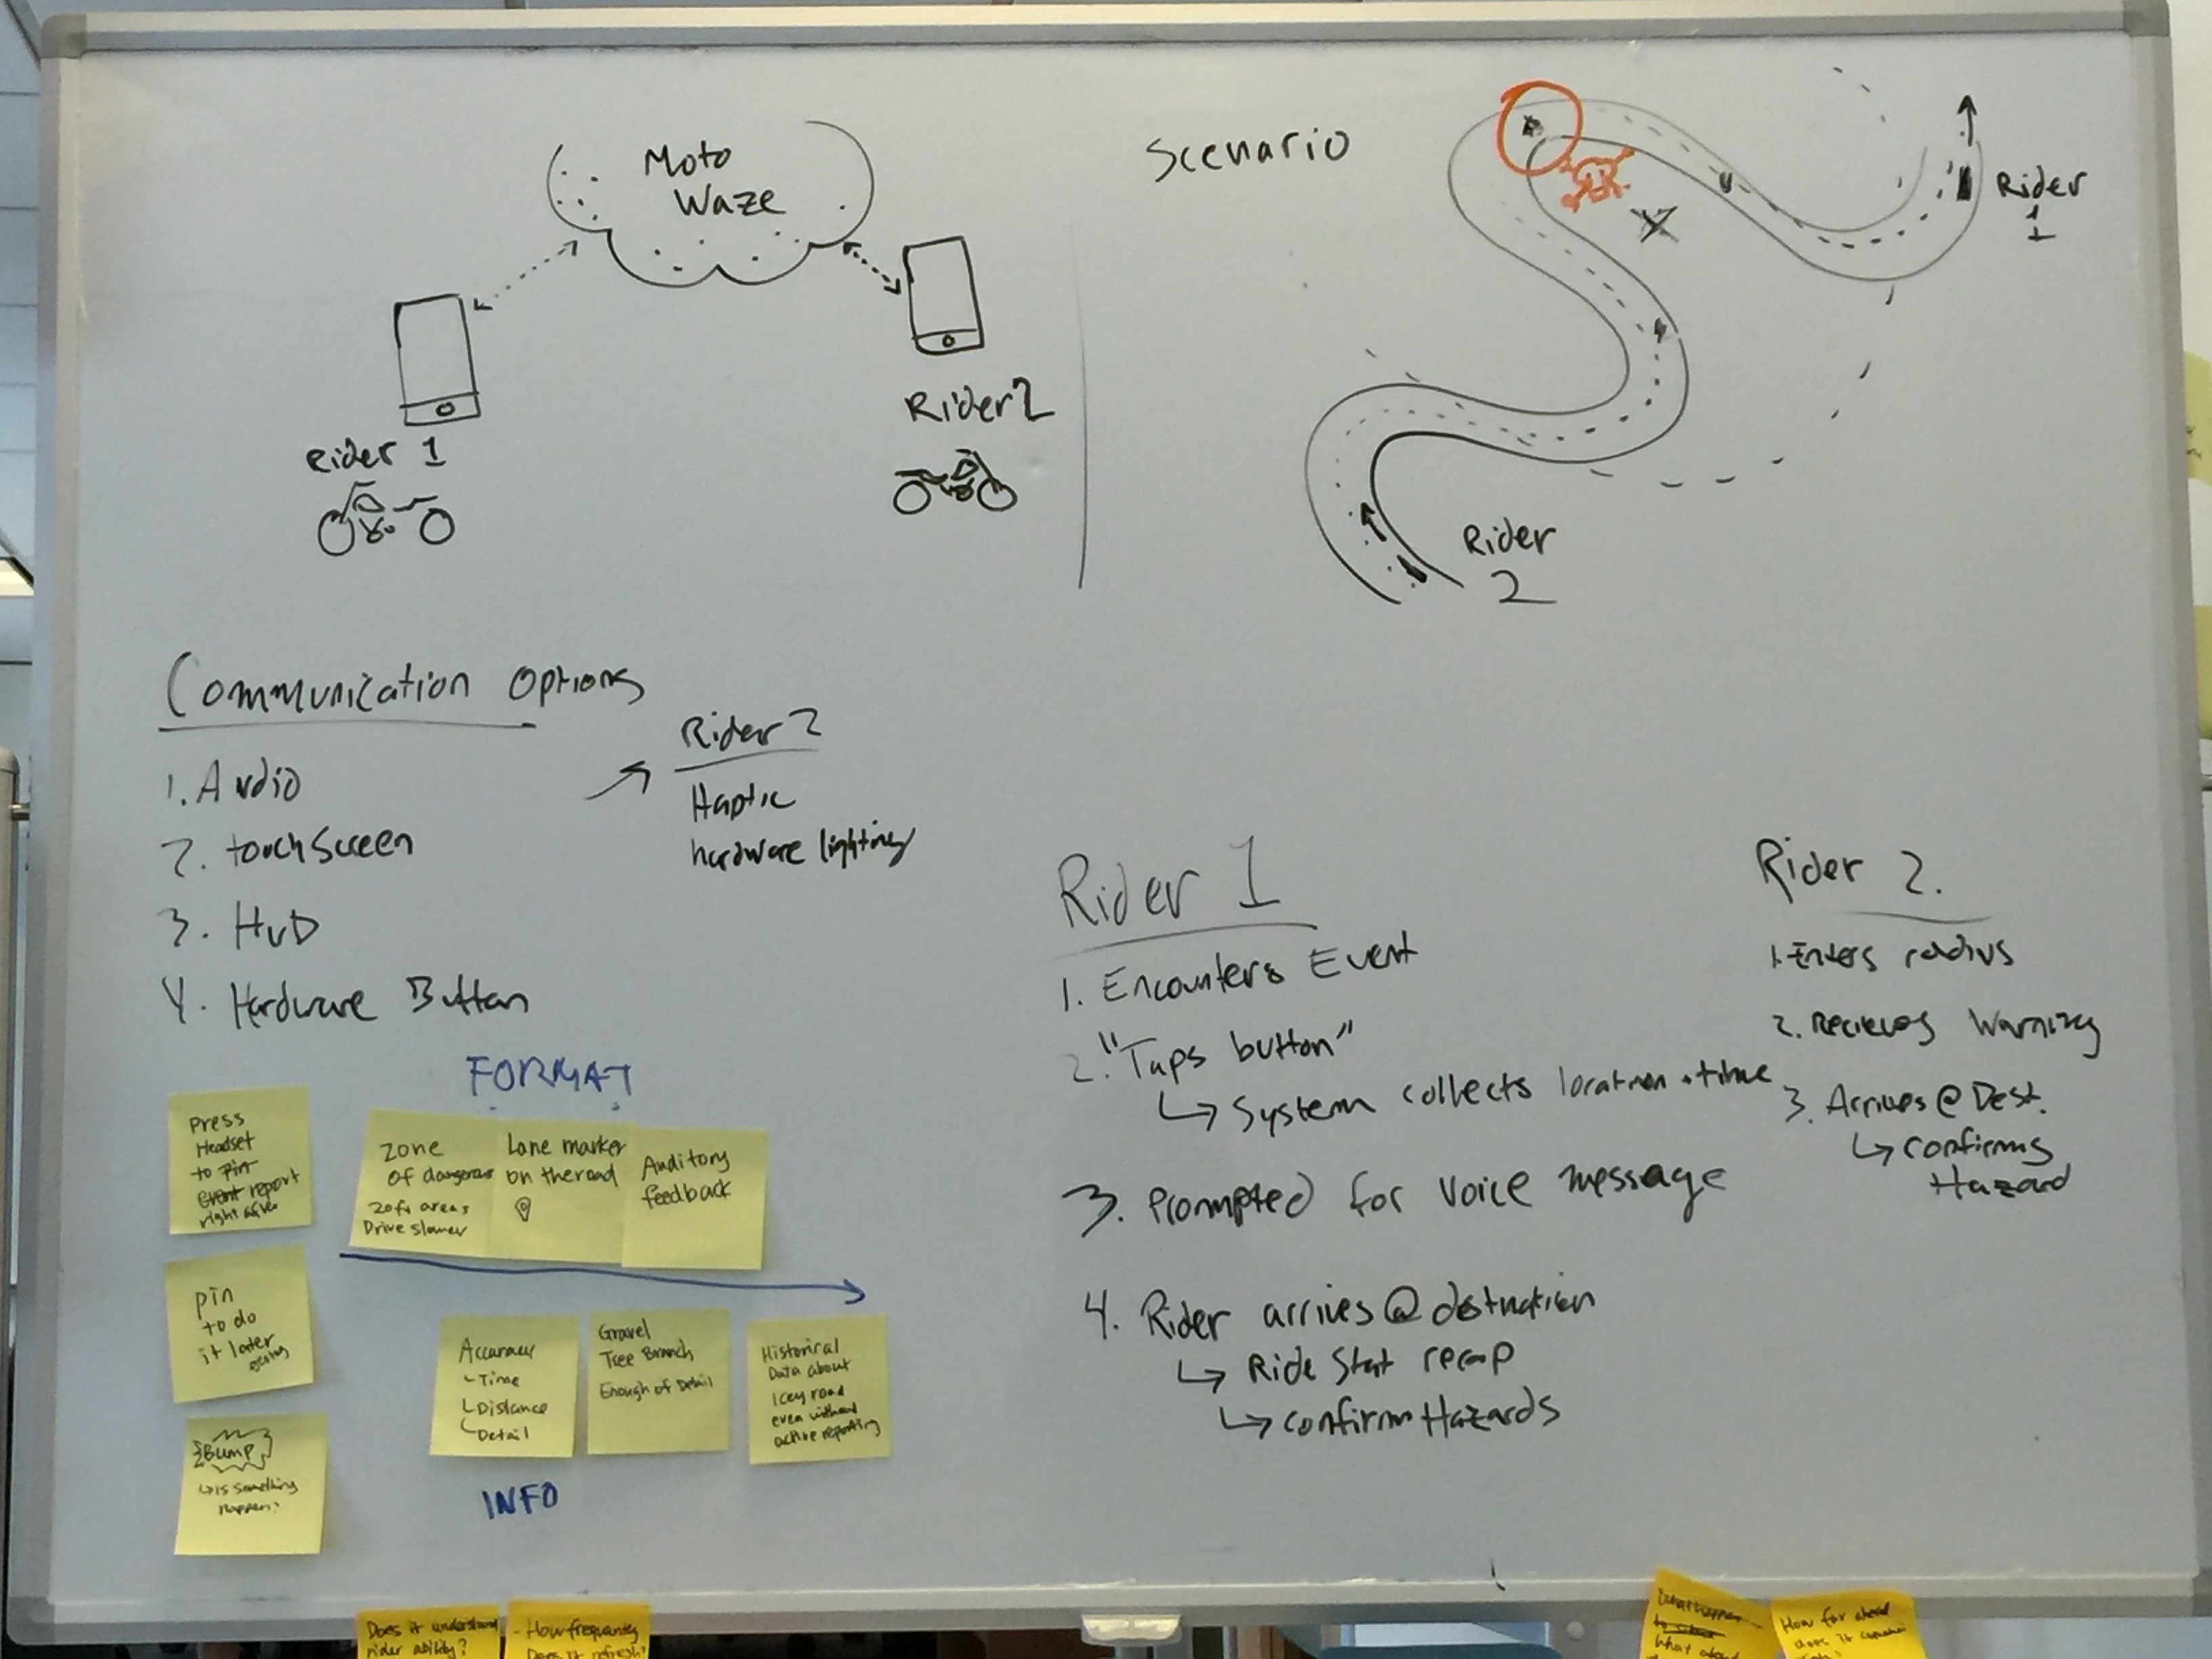 Moto
Waze
Rider 1
Rider 2
Scenario
Rider
1
Rider
2
Communication Options
1. Audio
2. touchScreen
3. HUD
4. Hardware Button
Rider 2
Haptic
hardware lighting
FORMAT
Press
Headset
to pin
event report
right after
pin
to do
it later
Bump
↳ is something
happen?
zone
of dangerous
20ft areas
Drive slower
Lane marker
on the road
Auditory
feedback
Accuracy
Time
Distance
Detail
Gravel
Tree Branch
Enough of Detail
Historical
Data about
Icey road
even without
active reporting
INFO
Rider 1
1. Encounters Event
2. "Taps button"
↳ System collects location + time
3. Prompted for voice message
4. Rider arrives @ destnation
↳ Ride Stat recap
↳ confirm Hazards
Rider 2.
1. Enters radius
2. Recieves Warning
3. Arrives @ Dest.
↳ confirms
Hazard
Does it understand
rider ability?
- How frequently
Does it refresh?
What about
How far ahead
does it